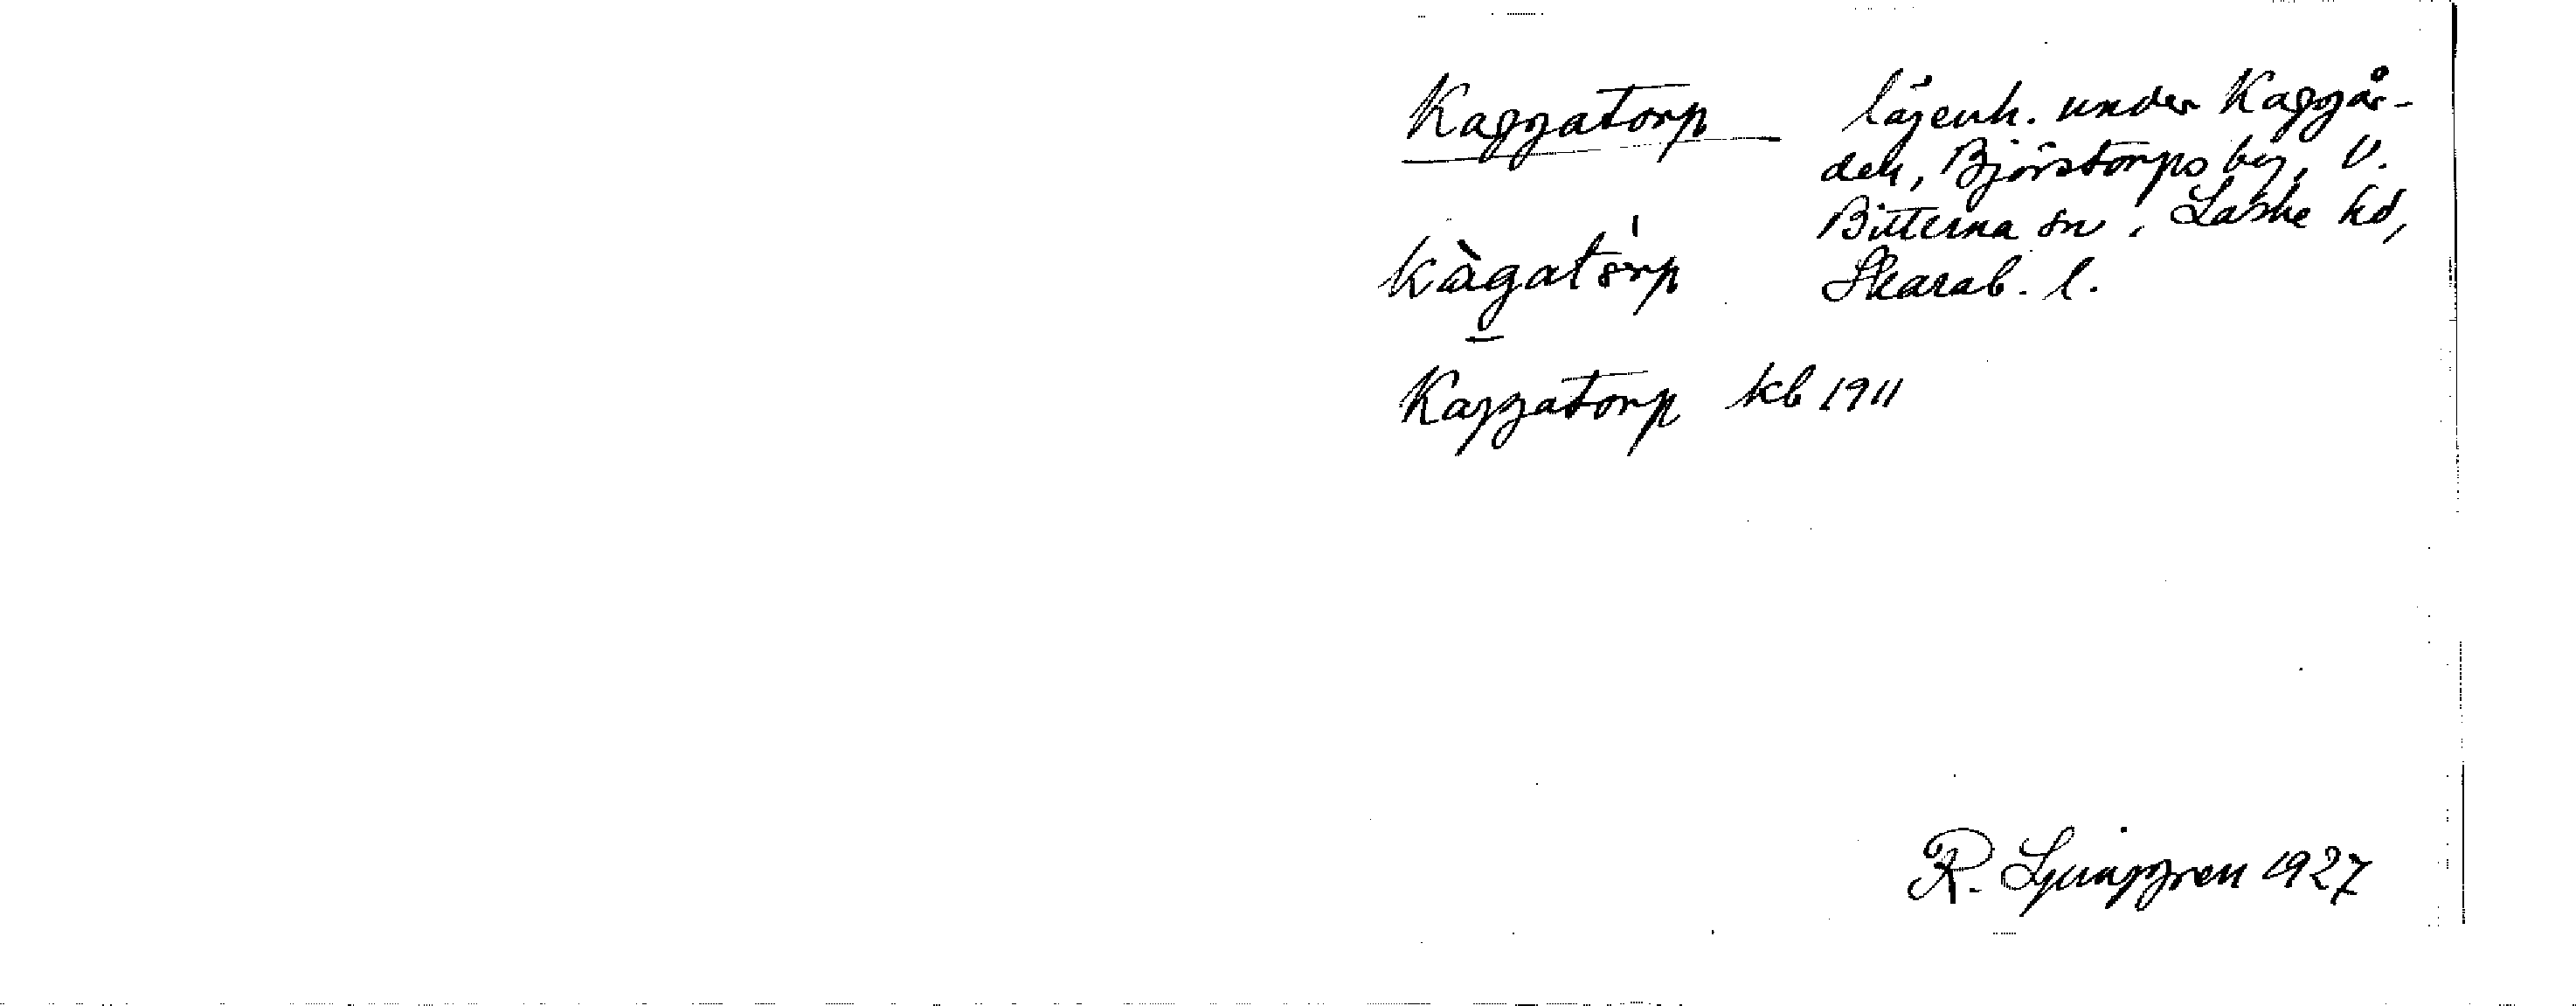 Kaggatorp lägenh. under Kaggår-
den, Björstorps by, V.
Bitterna sn, Laske hd,
kàgatórp Skarab. l.
Kaggatorp kb 1911
R. Ljunggren 1927